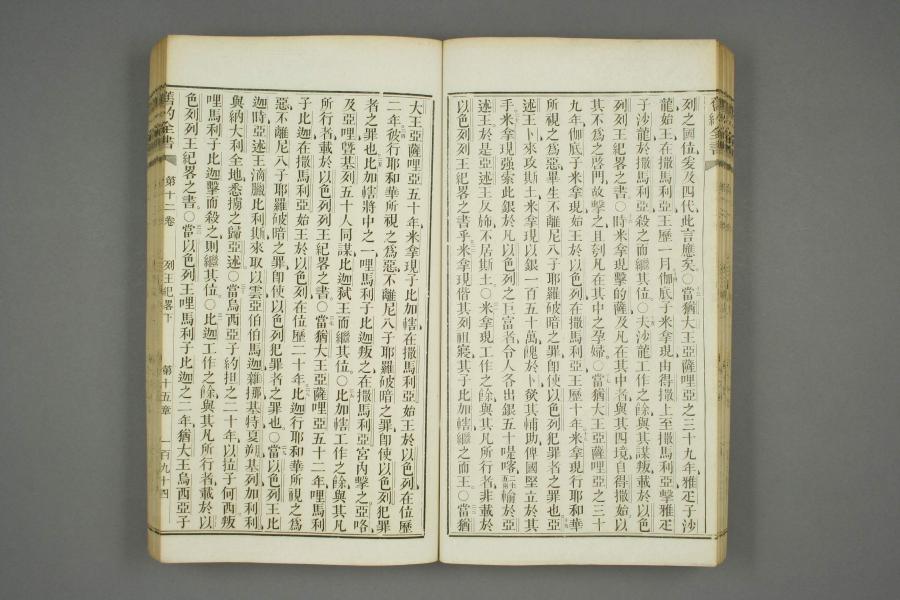 列之國位爰及四代此言應矣○當猶大王亞薩哩亞之三十九年雅疋子沙
龍始王在撒馬利亞王歷一月伽底子米拿現由得撒上至撒馬利亞擊雅疋
子沙龍於撒馬利亞殺之而繼其位○夫沙龍工作之餘與其謀叛載於以色
列列王紀畧之書○時米拿現擊的薩及凡在其中者與其四境自得撒始以
其不爲之啓門故擊之且刳凡在其中之孕婦○當猶大王亞薩哩亞之三十
九年伽底子米拿現始王於以色列在撒馬利亞王歷十年米拿現行耶和華
所視之爲惡畢生不離尼八子耶羅破暗之罪卽使以色列犯罪者之罪也亞
述王卜來攻斯土米拿現以銀一百五十萬餽於卜俟其輔助俾國堅立於其
手米拿現强索此銀於凡以色列之巨富者令人各出銀五十㖷喀輸於亞
述王於是亞述王反斾不居斯土○米拿現工作之餘與其凡所行者非載於
以色列列王紀畧之書乎米拿現偕其列祖寢其子比加轄繼之而王○當猶
大王亞薩哩亞五十年米拿現子比加轄在撒馬利亞始王於以色列在位歷
二年彼行耶和華所視之爲惡不離尼八子耶羅破暗之罪卽使以色列犯罪
者之罪也比加轄將中之一哩馬利子比迦叛之在撒馬利亞宮內擊之亞咯
及亞哩曁基列五十人同謀比迦弑王而繼其位○比加轄工作之餘與其凡
所行者載於以色列列王紀畧之書○當猶大王亞薩哩亞五十二年哩馬利
子比迦在撒馬利亞始王於以色列在位歷二十年比迦行耶和華所視之爲
惡不離尼八子耶羅破暗之罪卽使以色列犯罪者之罪也○當以色列王比
迦時亞述王滴臘比利斯來取以雲亞伯伯馬迦雜挪基特夏朔基列加利利
與納大利全地悉擄之歸亞述○當烏西亞子約担之二十年以拉子何西叛
哩馬利子比迦擊而殺之則繼其位○比迦工作之餘與其凡所行者載於以
色列列王紀畧之書○當以色列王哩馬利子比迦之二年猶大王烏西亞子
舊約全書 第十二卷 列王紀畧下 第十五章 一百九十四